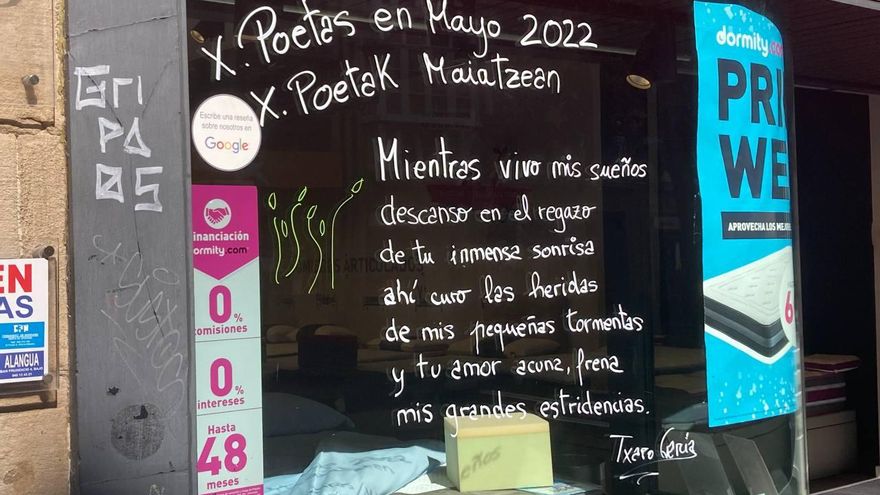 X. Poetas en Mayo 2022
X. Poetak Maiatzean
Mientras vivo mis sueños
descanso en el regazo
de tu inmensa sonrisa
ahí curo las heridas
de mis pequeñas tormentas
y tu amor acuna, frena
mis grandes estridencias.
Txaro
Escribe una reseña
sobre nosotros en
Google
inanciación
ormity.com
0%
omisiones
0%
ntereses
Hasta
48
meses
dormity.co
PRI
WE
APROVECHA LOS MEJO
6
EN
AS
ALANGUA
ARTICULADOS